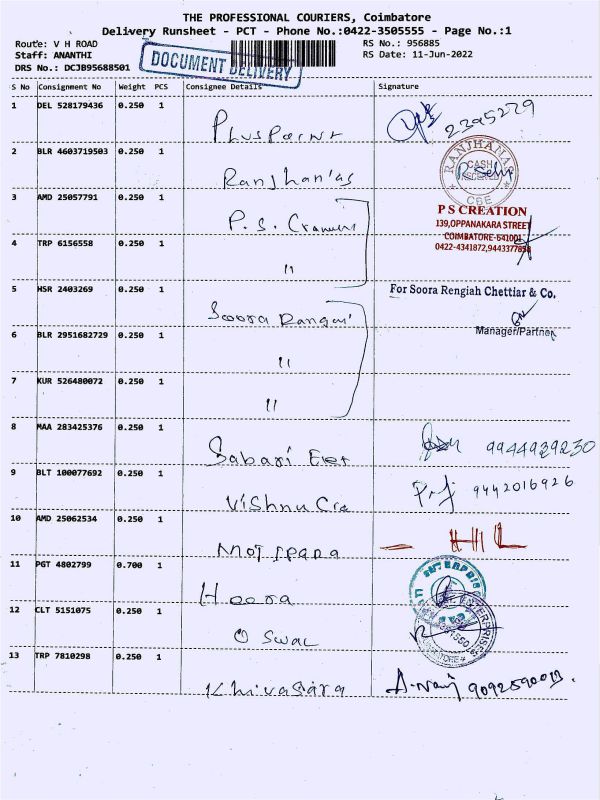 THE PROFESSIONAL COURIERS, Coimbatore
Delivery Runsheet - PCT - Phone No.:0422-3505555 - Page No.:1
Route: V H ROAD
RS No.: 956885
Staff: ANANTHI
RS Date: 11-Jun-2022
DRS No.: DCJB95688501
DOCUMENT DELIVERY
S No Consignment No Weight PCS Consignee Details Signature
1 DEL 528179436 0.250 1
Pluspoint 2395229
2 BLR 4603719503 0.250 1
Ranjhan'as RANJHANAS CASH RECEIVED CBE
3 AMD 25057791 0.250 1
P.S. P S CREATION
139,OPPANAKARA STREET
COIMBATORE-641001
0422-4341872,9443377858
4 TRP 6156558 0.250 1
"
5 HSR 2403269 0.250 1
For Soora Rengiah Chettiar & Co.
Soora Rangai
Manager/Partner
6 BLR 2951682729 0.250 1
"
7 KUR 526480072 0.250 1
"
8 MAA 283425376 0.250 1
Sabari 9944929230
9 BLT 100077692 0.250 1
Vishnu Cra 9442016926
10 AMD 25062534 0.250 1
11 PGT 4802799 0.700 1
Heera
12 CLT 5151075 0.250 1
Oswal
13 TRP 7810298 0.250 1
Khivasara